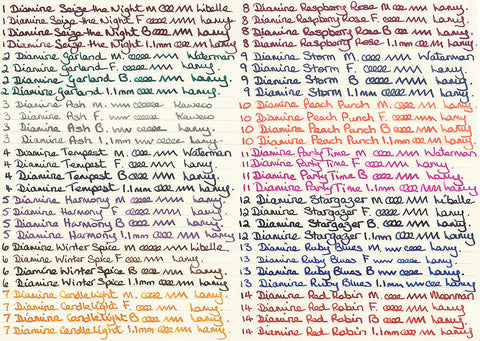 1 Diamine Seize the Night M Libelle
1 Diamine Seize the Night F Lamy.
1 Diamine Seize the Night B Lamy.
1 Diamine Seize the Night 1.1mm Lamy
2 Diamine Garland M. Waterman
2 Diamine Garland F. Lamy.
2 Diamine Garland B Lamy.
2 Diamine Garland 1.1mm Lamy.
3 Diamine Ash M. Kaweco
3 Diamine Ash F. Kaweco
3 Diamine Ash B. Lamy.
3 Diamine Ash 1.1mm Lamy.
4 Diamine Tempest M. Waterman
4 Diamine Tempest F. Lamy.
4 Diamine Tempest B Lamy.
4 Diamine Tempest 1.1mm Lamy.
5 Diamine Harmony M Lamy.
5 Diamine Harmony F Lamy.
5 Diamine Harmony B Lamy.
5 Diamine Harmony 1.1mm Lamy.
6 Diamine Winter Spice M. Libelle.
6 Diamine Winter Spice F. Lamy.
6 Diamine Winter Spice B Lamy.
6 Diamine Winter Spice 1.1mm Lamy.
7 Diamine Candle Light M. Lamy.
7 Diamine Candle Light F. Lamy.
7 Diamine Candle Light B Lamy.
7 Diamine Candle Light 1.1mm Lamy
8 Diamine Raspberry Rose M. Lamy.
8 Diamine Raspberry Rose F. Lamy.
8 Diamine Raspberry Rose B Lamy
8 Diamine Raspberry Rose 1.1mm Lamy.
9 Diamine Storm M. Waterman
9 Diamine Storm F. Lamy.
9 Diamine Storm B Lamy.
9 Diamine Storm 1.1mm Lamy.
10 Diamine Peach Punch M. Lamy.
10 Diamine Peach Punch F. Lamy.
10 Diamine Peach Punch B Lamy.
10 Diamine Peach Punch 1.1mm Lamy.
11 Diamine Party Time M Waterman
11 Diamine Party Time F. Lamy.
11 Diamine Party Time B Lamy.
11 Diamine Party Time 1.1mm Lamy
12 Diamine Stargazer M Libelle
12 Diamine Stargazer F. Lamy.
12 Diamine Stargazer B Lamy.
12 Diamine Stargazer 1.1mm Lamy
13 Diamine Ruby Blues M Lamy.
13 Diamine Ruby Blues F Lamy.
13 Diamine Ruby Blues B Lamy.
13 Diamine Ruby Blues 1.1mm Lamy
14 Diamine Red Robin M. Moonman
14 Diamine Red Robin F. Lamy.
14 Diamine Red Robin B Lamy.
14 Diamine Red Robin 1.1mm Lamy.